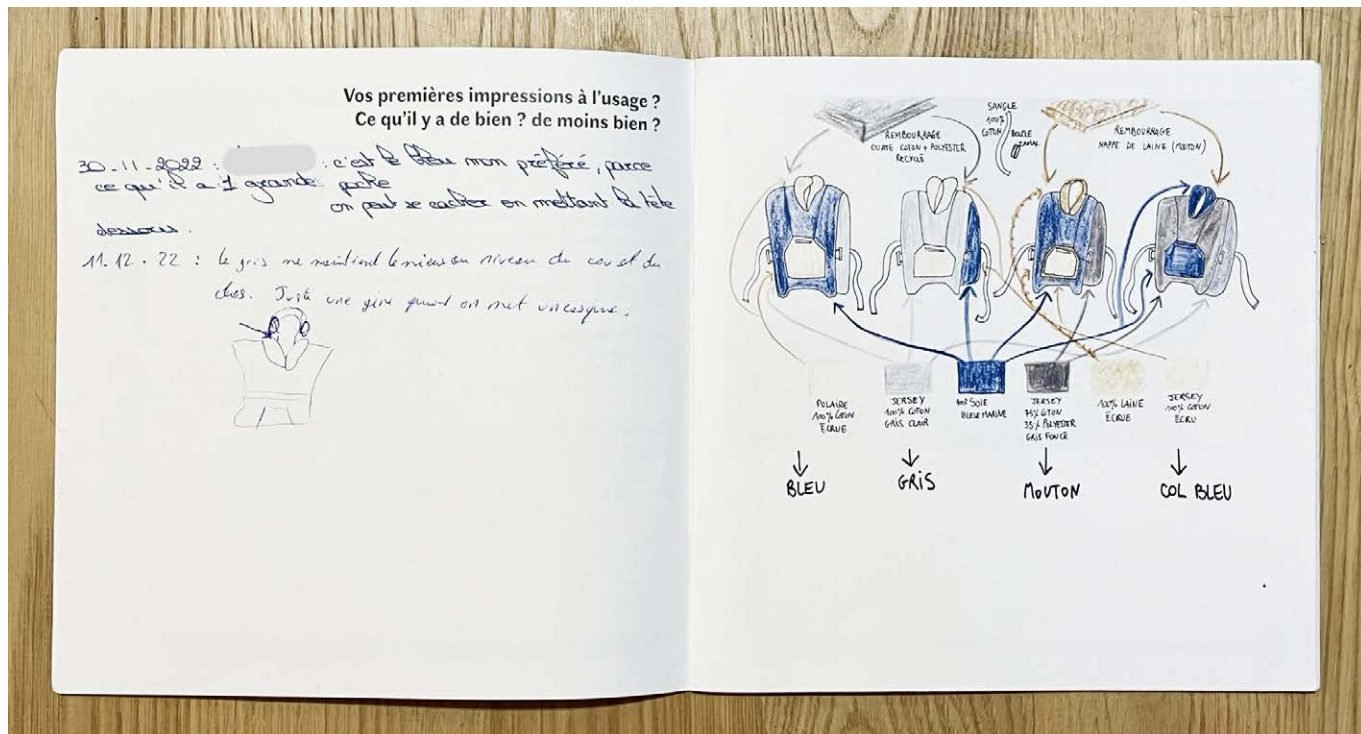 Vos premières impressions à l'usage ?
Ce qu'il y a de bien ? de moins bien ?
30-11-2022 : : c'est le bleu mon préféré, parce
ce qu'il a 1 grande poche
on peut se cacher en mettant la tête
dessous.
11.12.22 : le gris me maintient le mieux au niveau du cou et du
dos. Juste une gêne quand on met un casque.
REMBOURRAGE
OUATE COTON + POLYESTER
RECYCLÉ
SANGLE
100%
COTON
BOUCLE
REMBOURRAGE
NAPPE DE LAINE (MOUTON)
POLAIRE
100% COTON
ÉCRUE
JERSEY
100% COTON
GRIS CLAIR
100% SOIE
BLEU MARINE
JERSEY
75% COTON
35% POLYESTER
GRIS FONCÉ
100% LAINE
ÉCRUE
JERSEY
100% COTON
ÉCRU
BLEU
GRIS
MOUTON
COL BLEU